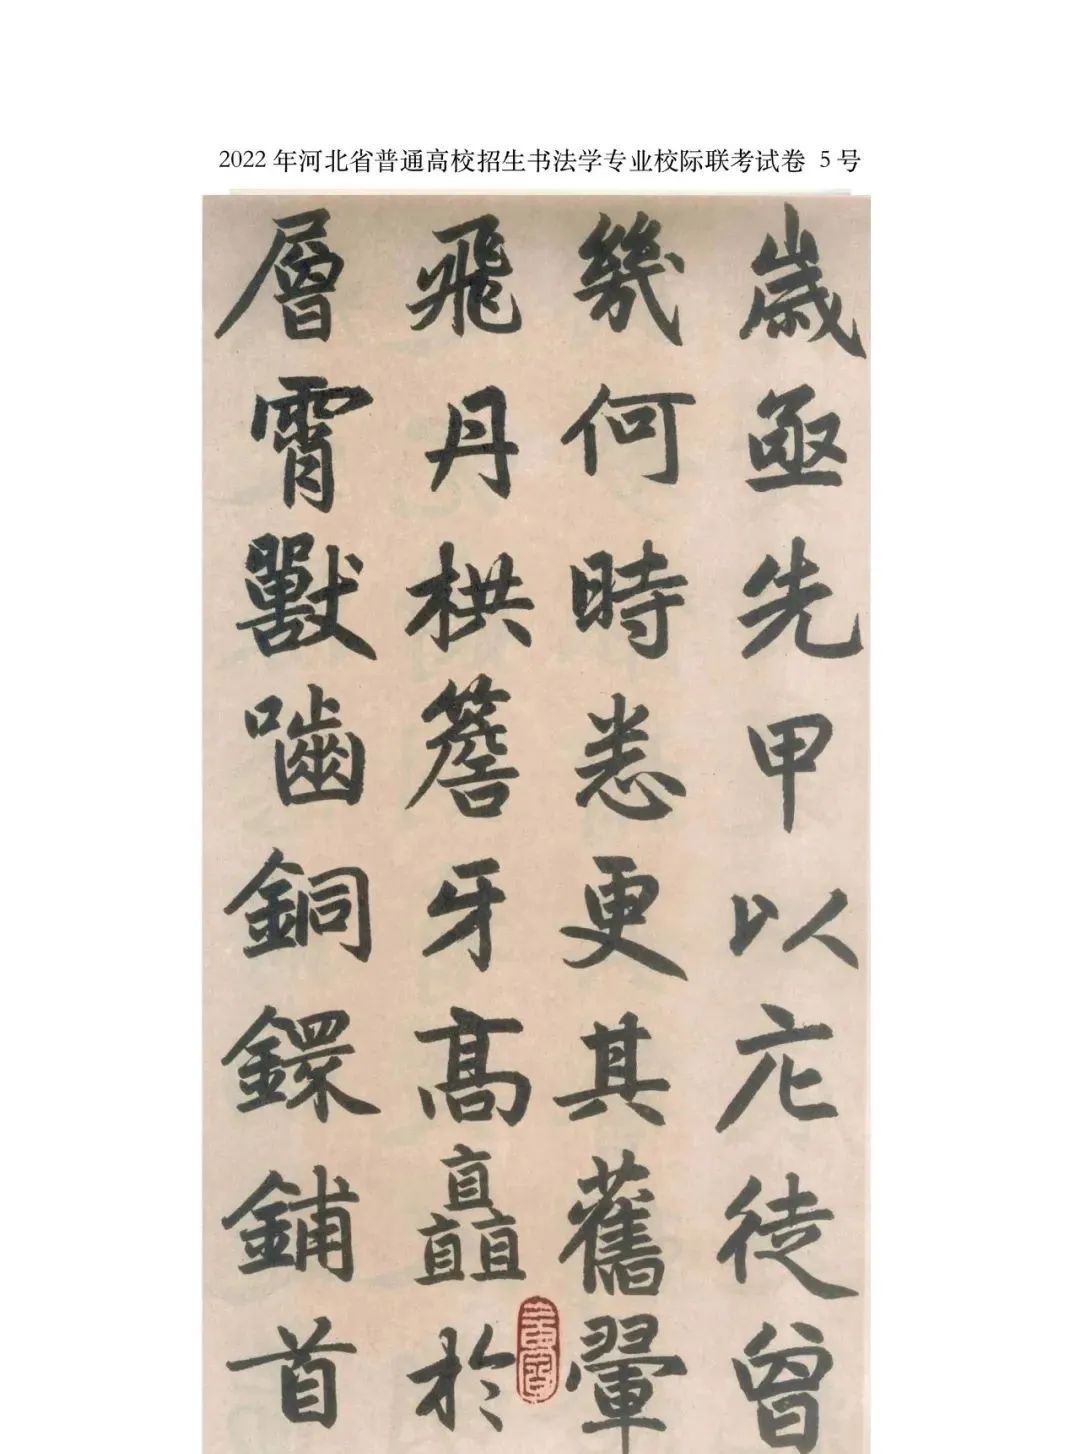 2022年河北省普通高校招生书法学专业校际联考试卷 5号
歲亟先甲以庀徒曾
幾何時悉更其舊翬
飛丹栱簷牙髙矗於
層霄獸嚙銅鐶鋪首